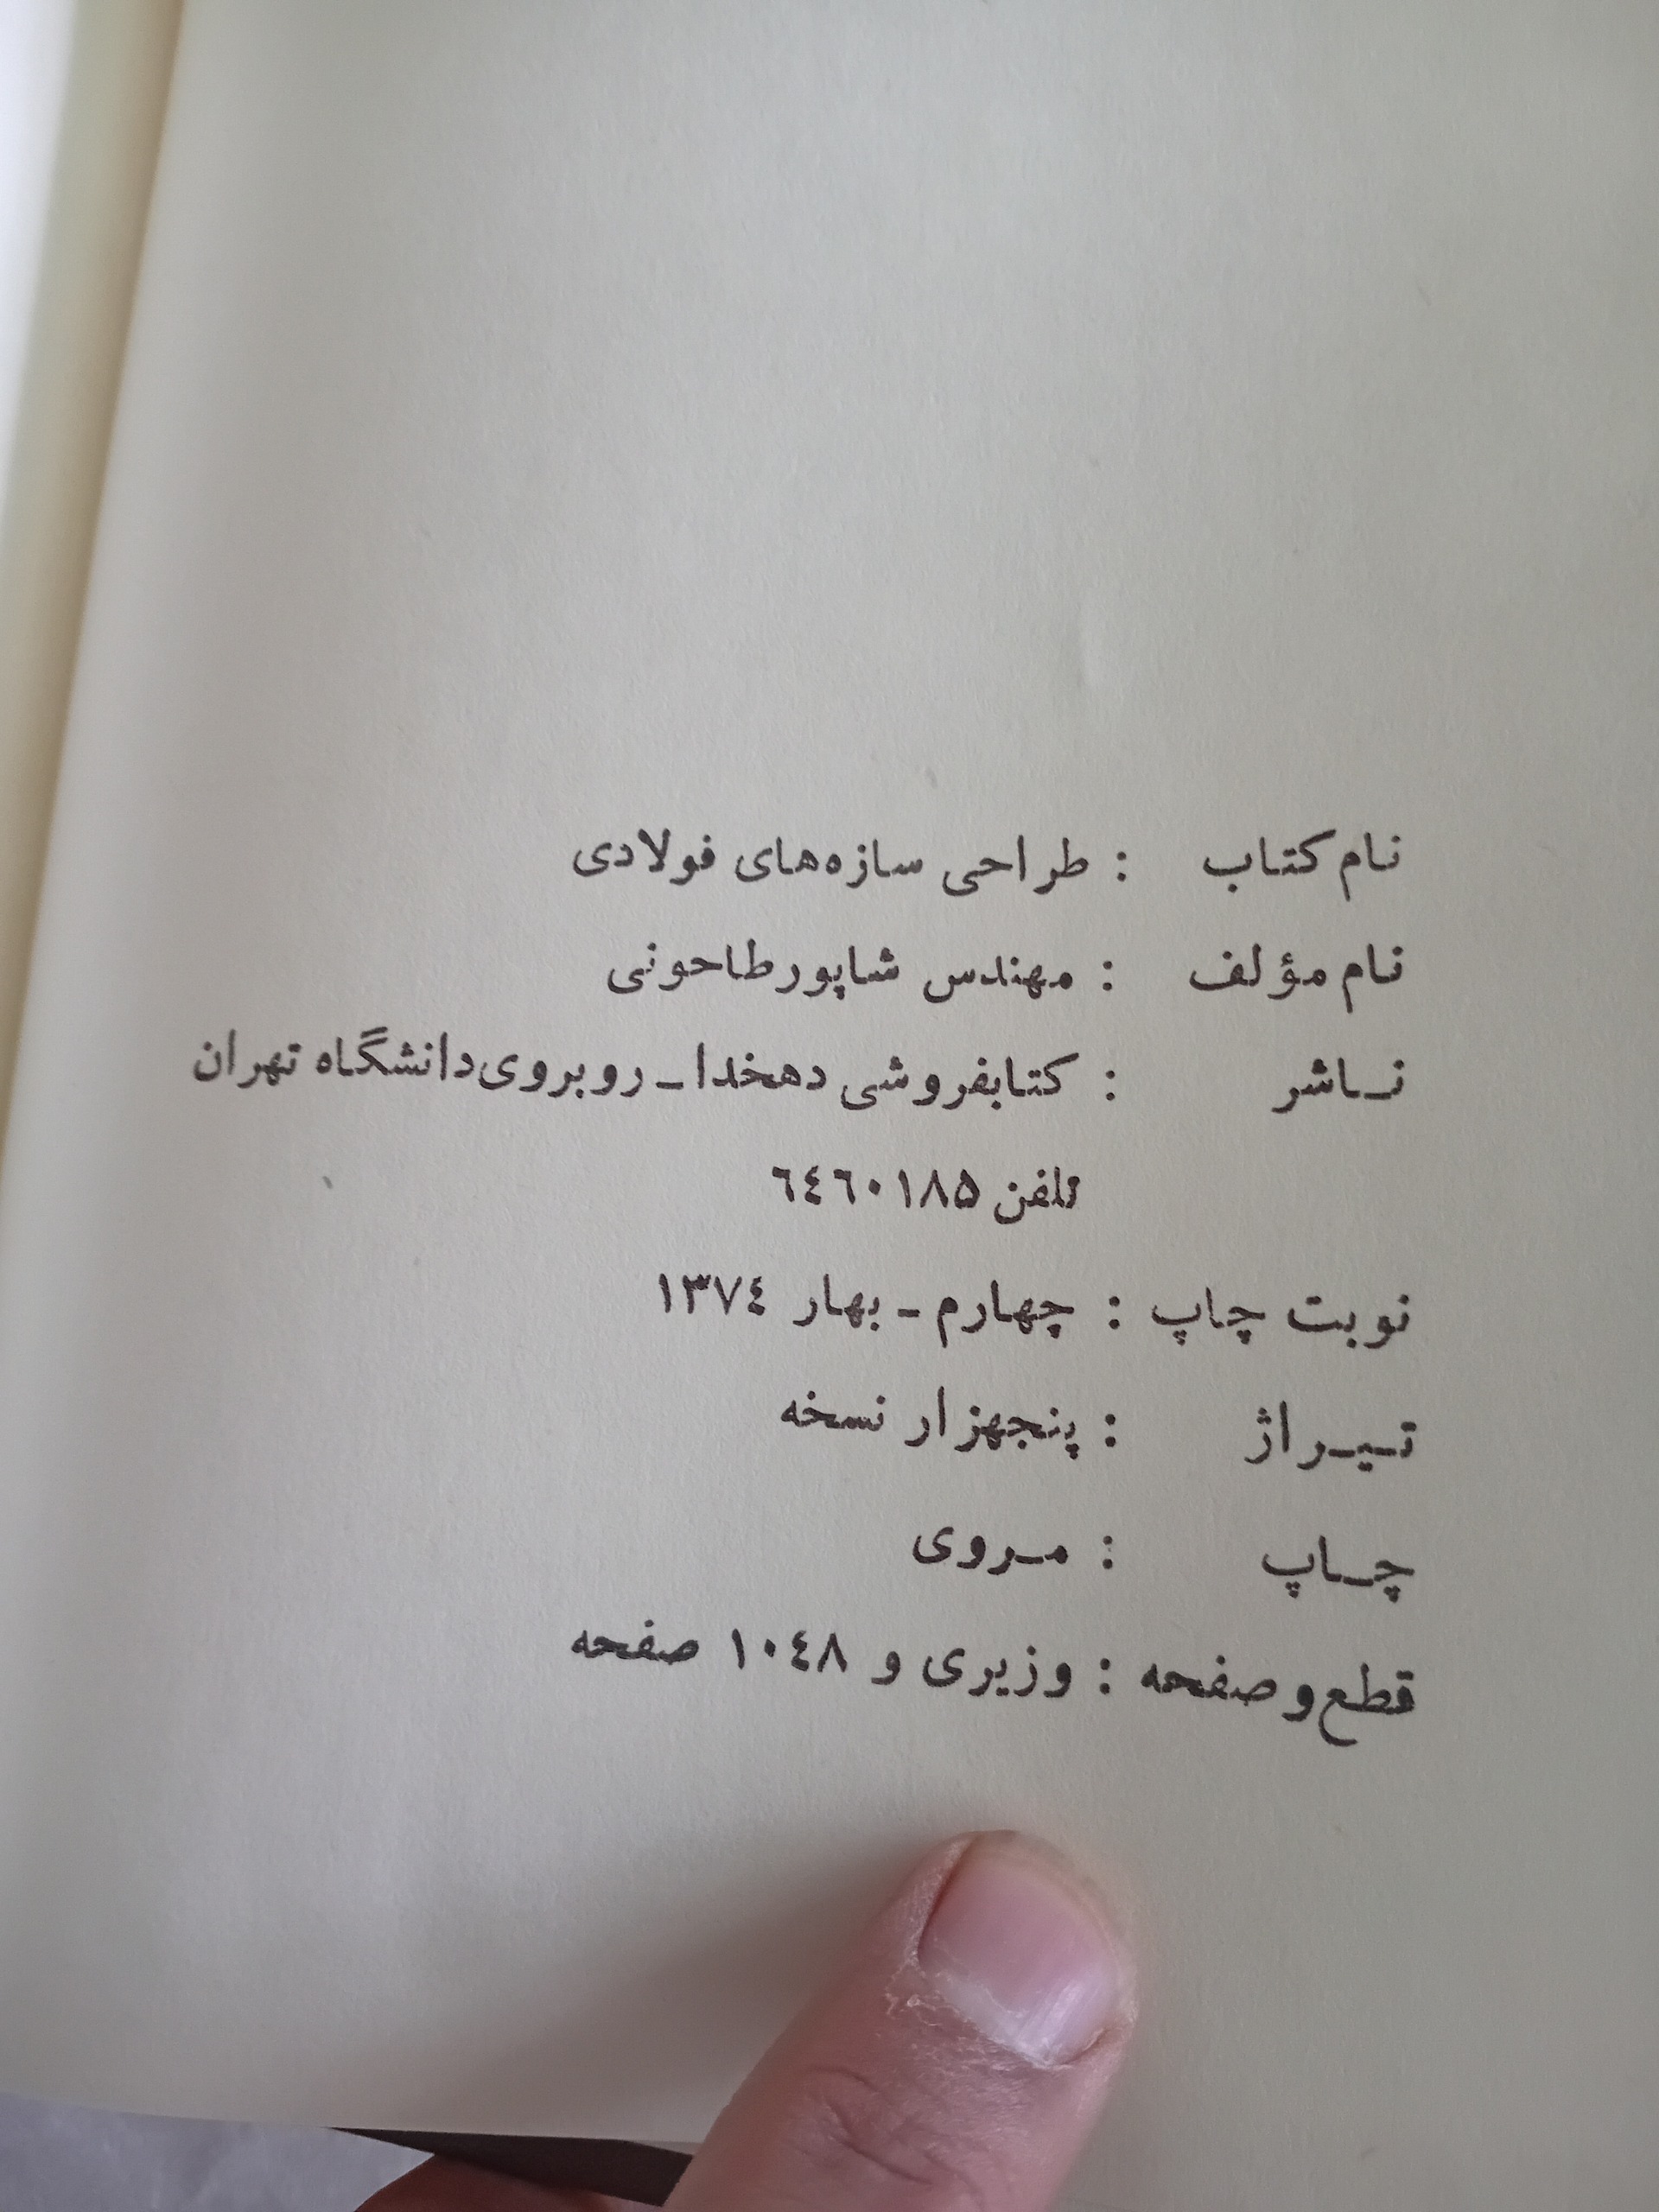 نام کتاب : طراحی سازه‌های فولادی
نام مؤلف : مهندس شاپور طاحونی
ناشر : کتابفروشی دهخدا ـ روبروی دانشگاه تهران
تلفن ٦٤٦٠١٨۵
نوبت چاپ : چهارم ـ بهار ١٣٧٤
تیراژ : پنجهزار نسخه
چاپ : مروی
قطع و صفحه : وزیری و ١٠٤٨ صفحه